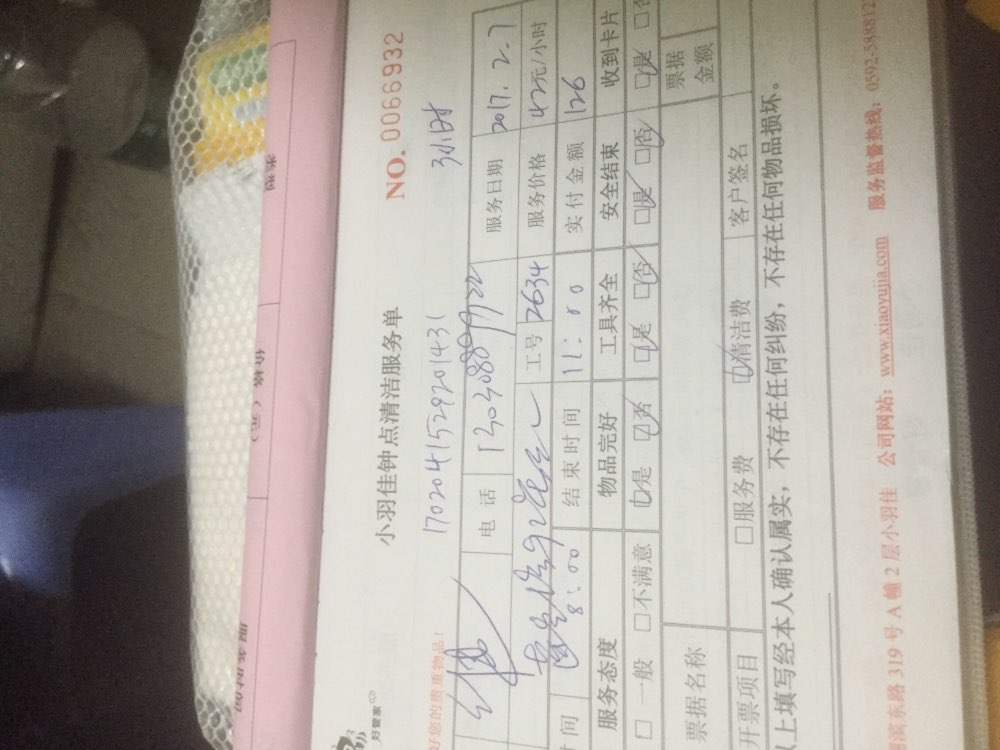 小羽佳钟点清洁服务单 NO. 0066932
好管家
好您的贵重物品！
1702041529201431 3小时
电 话 服务日期 2017.2.7
工号 2634 服务价格 42元/小时
时间 8:00 结束时间 11:00 实付金额 126
服务态度 物品完好 工具齐全 安全结束 收到卡片
□ 一般 □不满意 □是 □否 □是 □否 □是 □否 □是 □否
票据名称 票据金额
开票项目 □服务费 □清洁费 客户签名
以上填写经本人确认属实，不存在任何纠纷，不存在任何物品损坏。
滨东路 319 号 A 幢 2 层小羽佳 公司网站：www.xiaoyujia.com 服务监督热线：0592-588812